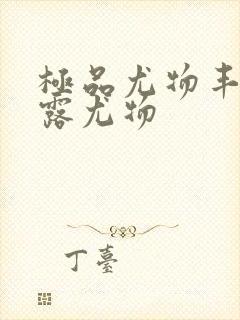 極品尤物丰
露尤物
丁臺